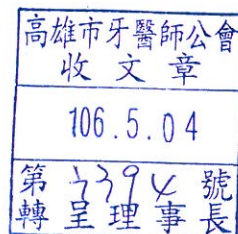 高雄市牙醫師公會
收文章
106.5.04
第 394 號
轉呈理事長